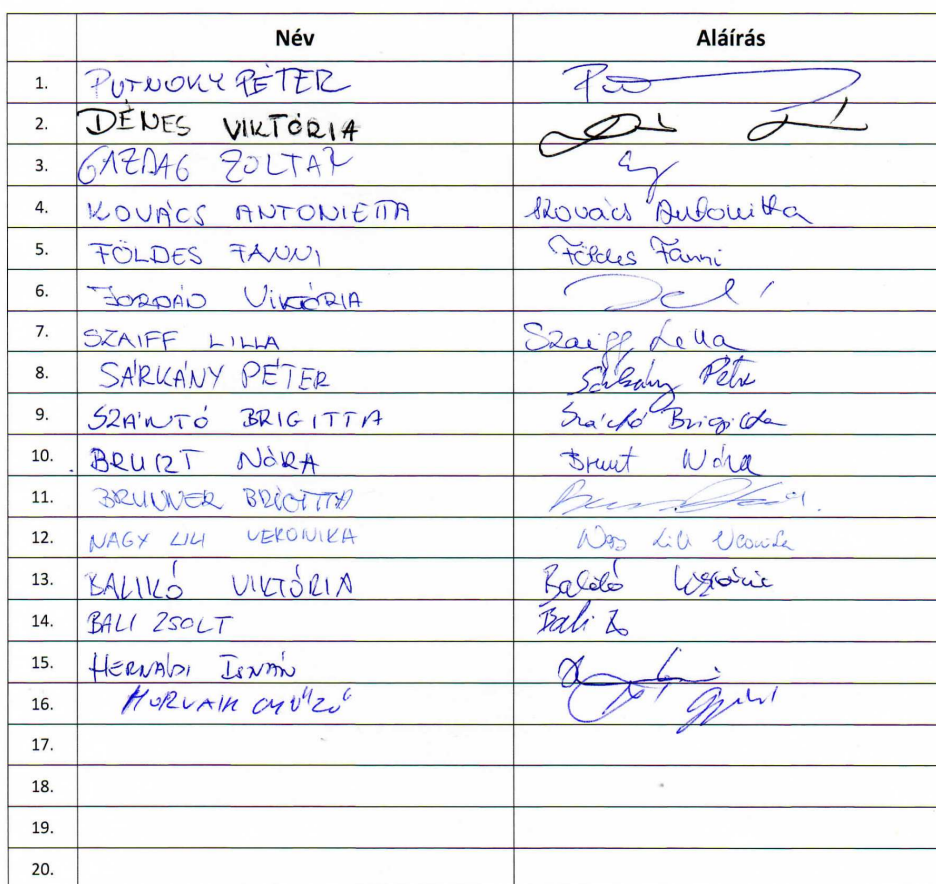 Név Aláírás
1. PUTNOKY PÉTER
2. DÉNES VIKTÓRIA
3. GAZDAG ZOLTÁN
4. KOVÁCS ANTONIETTA Kovács Antonietta
5. FÖLDES FANNI Földes Fanni
6. JORDÁN VIKTÓRIA
7. SZAIFF LILLA Szaiff Lilla
8. SÁRKÁNY PÉTER Sárkány Péter
9. SZÁNTÓ BRIGITTA Szántó Brigitta
10. BRUSZT NÓRA Bruszt Nóra
11. BRUNNER BRIGITTA
12. NAGY LILI VERONIKA Nagy Lili Veronika
13. BALIKÓ VIKTÓRIA Balikó Viktória
14. BALI ZSOLT Bali Zs
15. HERNÁDI ISTVÁN
16. HORVÁTH
17.
18.
19.
20.